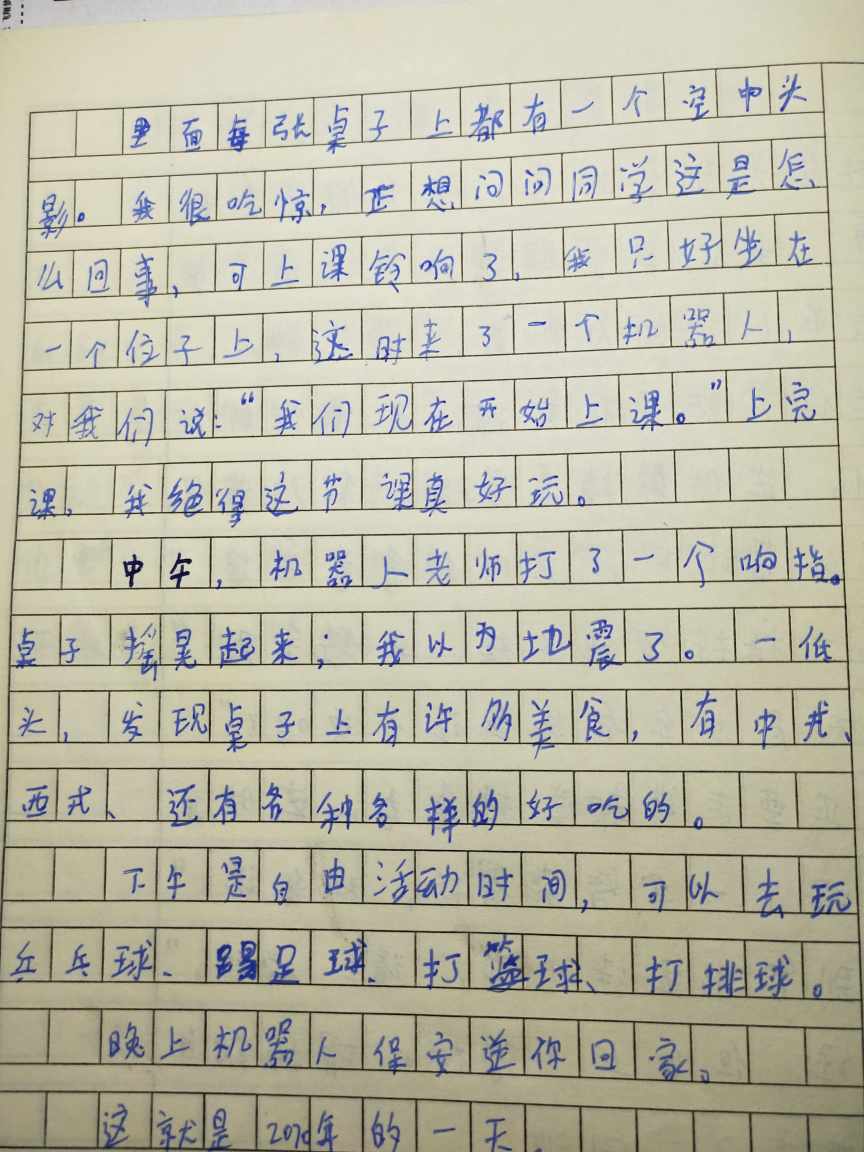 里面每张桌子上都有一个空中头
影。我很吃惊,正想问问同学这是怎
么回事,可上课铃响了,我只好坐在
一个位子上,这时来了一个机器人,
对我们说:“我们现在开始上课。”上完
课,我绝得这节课真好玩。
中午,机器人老师打了一个响指。
桌子摇晃起来;我以为地震了。一低
头,发现桌子上有许多美食,有中式、
西式、还有各种各样的好吃的。
下午是自由活动时间,可以去玩
乒乓球、踢足球、打篮球、打排球。
晚上机器人保安送你回家。
这就是年的一天